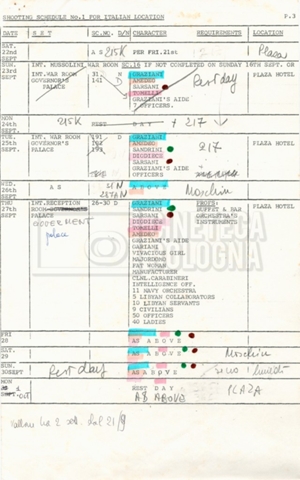 SHOOTING SCHEDULE No.1 FOR ITALIAN LOCATION P.3
DAYS SET SC. D/N CHARACTER REQUIREMENTS LOCATION
SAT. 22nd SEPT AS 215K PER FRI.21st Plaza
SUN. INT. MUSSOLINI WAR ROOM SC.16 IF NOT COMPLETED ON SUNDAY 16TH SEPT. ON
23rd SEPT INT.WAR ROOM 31 N GRAZIANI PLAZA HOTEL
GOVERNOR'S 141 D AMEDEO Rest day
PALACE SARSANI
TOMELLI
GRAZIANI'S AIDE
7 OFFICERS.
MON 24th SEPT. 215K REST DAY + 217
TUE. INT.WAR ROOM 191 D GRAZIANI PLAZA HOTEL
25th GOVERNOR'S AMEDEO
SEPT. PALACE 193 SANDRINI 217
DIODIECE
SARSANI
GRAZIANI'S AIDE
OFFICERS
WED. 26th SEPT AS ABOVE Moschin
THU INT.RECEPTION 26-30 D GRAZIANI PROPS: PLAZA HOTEL
27th ROOM SANDRINI BUFFET & BAR
SEPT GOVERMENT SARSANI ORCHESTRA'S
palace DIODIECE INSTRUMENTS
TOMELLI
AMEDEO
GRAZIANI'S AIDE
GARIANI
VIVACIOUS GIRL
MAJORDOMO
FAT WOMAN
MANUFACTURER
CLNL.CARABINERI
INTELLIGENCE OFF.
11 NAVY ORCHESTRA
5 LIBYAN COLLABORATORS
10 LIBYAN SERVANTS
9 CIVILIANS
50 OFFICERS
40 LADIES
CINETECA
BOLOGNA
FRI 28 AS ABOVE
SAT. 29 AS ABOVE Moschin
SUN. 30SEPT Rest day AS ABOVE
MON 1 OCT REST DAY PLAZA
AS ABOVE
dal 21/9